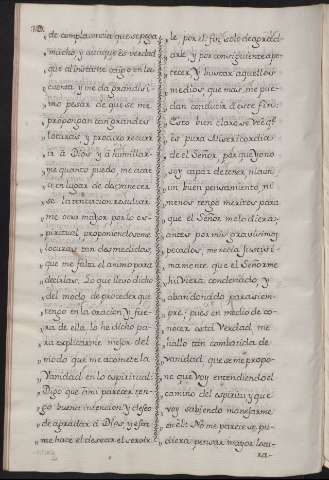 de complacencia que se pega
mucho, y aunque es verdad
que al instante caigo en la
cuenta, y me da grandisi-
mo pesar de que se me
propongan tan grandes
locuras y procuro recurir
à Dios y à humillar-
me quanto puedo, me acae-
ce en lugar de desvanecer
se la tentacion resultar
me otra mayor por lo es-
piritual, proponiendoseme
locuras tan desmedidas,
que me falta el animo para
decirlas. Lo que llevo dicho
del modo de proceder que
tengo en la oracion y fue-
ra de ella, lo he dicho pa-
ra explicarme mejor del
modo que me acomete la
Vanidad en lo espiritual:
Digo que ami parecer ten-
go buena intencion, y deseo
de agradar à Dios y esto
me hace el desear el servir-
le por el fin solo de agrad-
arle y por consiguiente ape-
tecer y buscar aquellos
medios que mas me pue-
dan conducir à este fin.
Esto bien claro se ve q̃
es pura Misericordia
de el Señor, por que yo no
soy capaz de tener ni aun
un buen pensamiento ni
menos tengo meritos para
que el Señor me lo diera,
antes por mis gravisimos
pecados, merecia justisi-
mamente que el Señor me
huviera condenado, y
abandonado para siem-
pre; pues en medio de co-
nocer esta Verdad me
hallo tan combatida de
vanidad que se me propo-
ne que voy entendiendo el
camino del espiritu y que
voy sabiendo manejarme
en el: No me parece se pu-
diera pensar mayor locu-
ra-